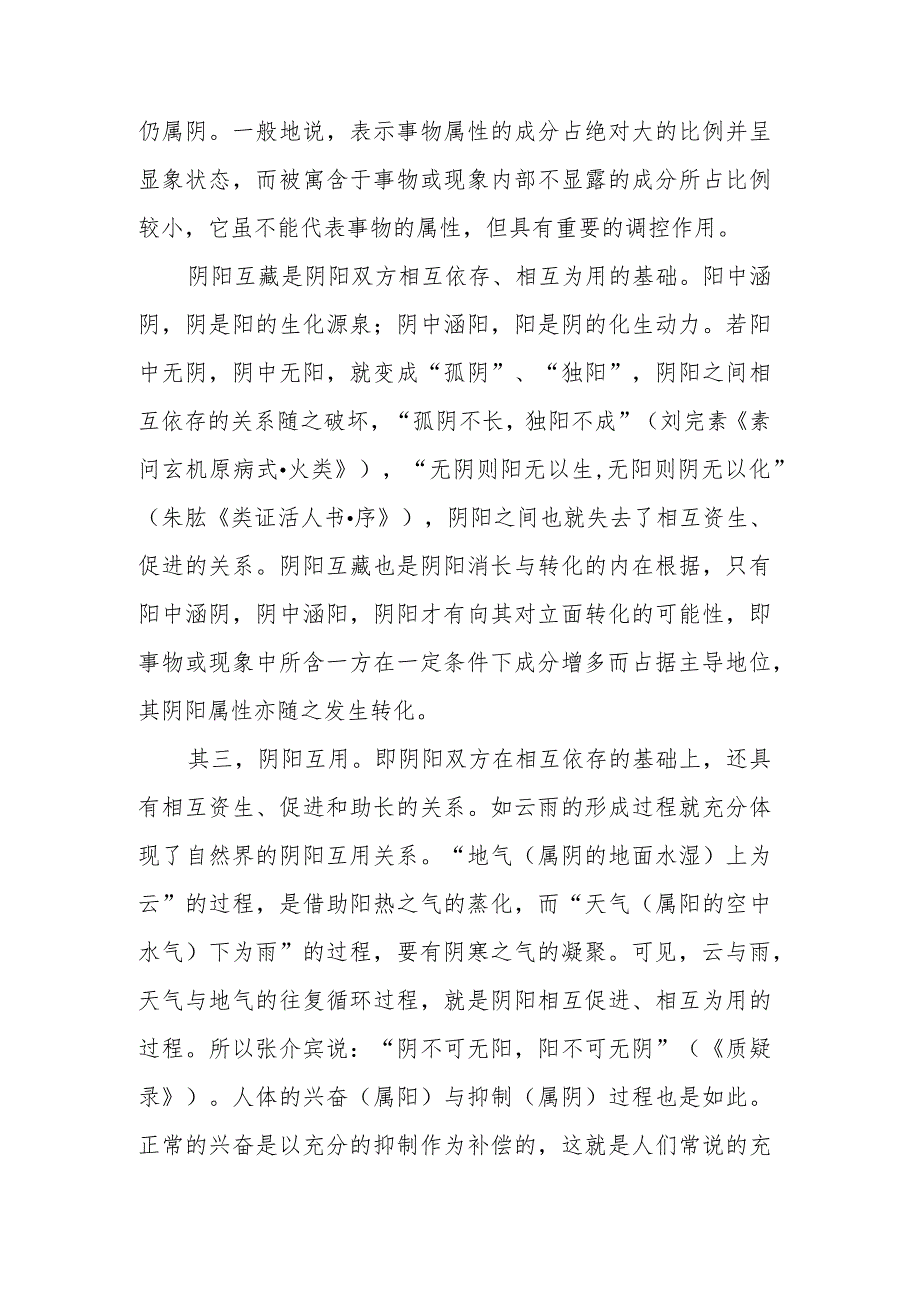 仍属阴。一般地说，表示事物属性的成分占绝对大的比例并呈
显象状态，而被寓含于事物或现象内部不显露的成分所占比例
较小，它虽不能代表事物的属性，但具有重要的调控作用。
阴阳互藏是阴阳双方相互依存、相互为用的基础。阳中涵
阴，阴是阳的生化源泉；阴中涵阳，阳是阴的化生动力。若阳
中无阴，阴中无阳，就变成“孤阴”、“独阳”，阴阳之间相
互依存的关系随之破坏，“孤阴不长，独阳不成”（刘完素《素
问玄机原病式•火类》），“无阴则阳无以生,无阳则阴无以化”
（朱肱《类证活人书•序》），阴阳之间也就失去了相互资生、
促进的关系。阴阳互藏也是阴阳消长与转化的内在根据，只有
阳中涵阴，阴中涵阳，阴阳才有向其对立面转化的可能性，即
事物或现象中所含一方在一定条件下成分增多而占据主导地位，
其阴阳属性亦随之发生转化。
其三，阴阳互用。即阴阳双方在相互依存的基础上，还具
有相互资生、促进和助长的关系。如云雨的形成过程就充分体
现了自然界的阴阳互用关系。“地气（属阴的地面水湿）上为
云”的过程，是借助阳热之气的蒸化，而“天气（属阳的空中
水气）下为雨”的过程，要有阴寒之气的凝聚。可见，云与雨，
天气与地气的往复循环过程，就是阴阳相互促进、相互为用的
过程。所以张介宾说：“阴不可无阳，阳不可无阴”（《质疑
录》）。人体的兴奋（属阳）与抑制（属阴）过程也是如此。
正常的兴奋是以充分的抑制作为补偿的，这就是人们常说的充